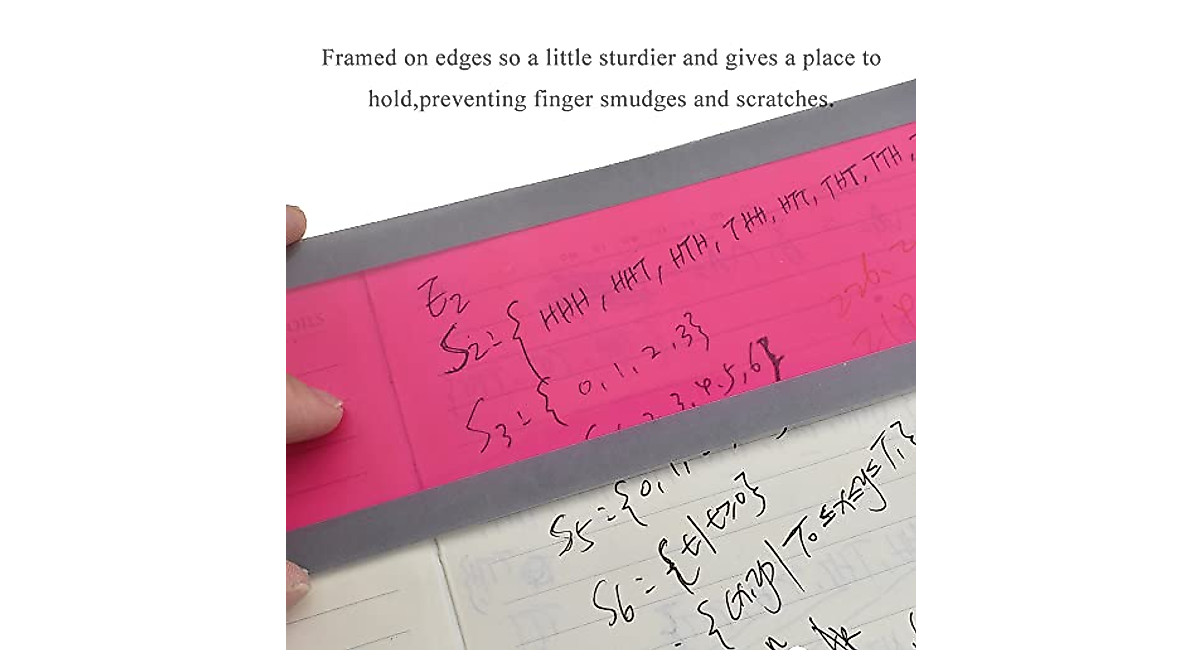 Framed on edges so a little sturdier and gives a place to
hold,preventing finger smudges and scratches.
ons
E2
S2={HHH, HHT, HTH, THH, HTT, THT, TTH,
S3={0,1,2,3}
2,3,4,5,6}
S5={0,1
S6={t|t≥0}
{(x,y)|T₀≤x≤y≤T₁}